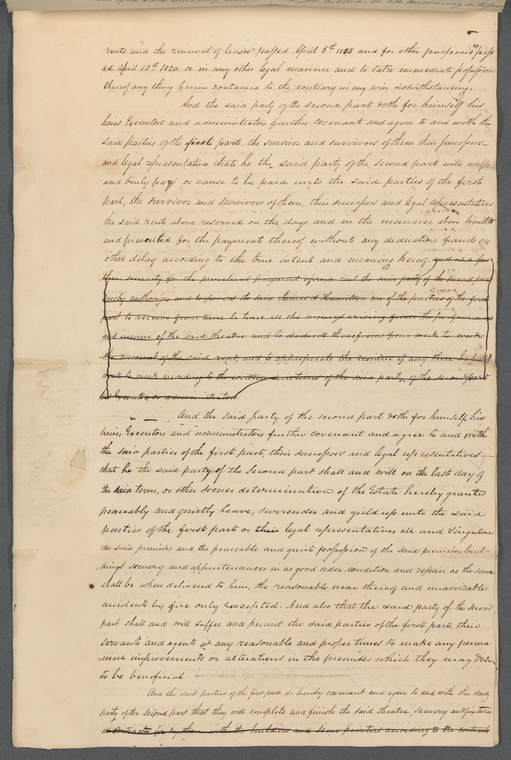 rents and the renewal of leases" passed April 5th 1813 and for other purposes" pass
ed April 13th 1820. or in any other legal manner and to take immediate possession
thereof any thing herein contained to the contrary in any wise notwithstanding.
And the said party of the second part doth for himself his
heirs Executors and administrators further covenant and agree to and with the
said parties of the first part, the survivor and survivors of them their successors
and legal representatives that he the said party of the second part will well
and truly pay or cause to be paid unto the said parties of the first
part, the survivor and survivors of them, their successors and legal representatives
the said rent above reserved on the days and in the manner above limited
and prescribed for the payment thereof without any deduction fraud or
other delay according to the true intent and meaning hereof, and as a fur
ther security for the punctual payment of said rent the said party of the second part
hereby authorizes and empowers the said James one of the parties of the first
part to receive from time to time all the moneys arising from the
and income of the said theatre and to deduct therefrom from week to week
the amount of the said rent, and to appropriate the residue if any there be from
week to week according to the written directions of the said party of the second part
his Executors or administrators
And the said party of the second part doth for himself his
heirs, Executors and administrators further covenant and agree to and with
the said parties of the first part, their successors and legal representatives
that he the said party of the second part shall and will on the last day of
the said term, or other sooner determination of the Estate hereby granted
peaceably and quietly leave, surrender and yield up unto the said
parties of the first part or their legal representatives all and singular
the said premises and the peaceable and quiet possession of the said premises build
ings scenery and appurtenances in as good order, condition and repair as the same
shall be when delivered to him, the reasonable wear thereof and unavoidable
accidents by fire only excepted. And also that the said party of the second
part shall and will suffer and permit the said parties of the first part, their
servants and agents at any reasonable and proper times to make any perma
nent improvements or alterations in the premises which they may deem
to be beneficial
And the said parties of the first part do hereby covenant and agree to and with the said
party of the second part that they will complete and finish the said theatre, scenery and fixtures
as contracted for by them with the builders and scene painters according to the contracts